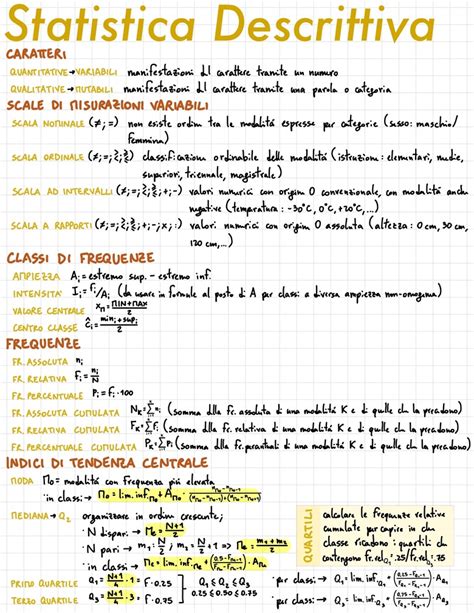 Statistica Descrittiva
CARATTERI
QUANTITATIVE → VARIABILI manifestazioni del carattere tramite un numero
QUALITATIVE → MUTABILI manifestazioni del carattere tramite una parola o categoria
SCALE DI MISURAZIONI VARIABILI
SCALA NOMINALE (≠;=) non esiste ordine tra le modalità espresse per categorie (sesso: maschio/
femmina)
SCALA ORDINALE (≠;=;≥;≤) classificazione ordinabile delle modalità (istruzione: elementari, medie,
superiori, triennale, magistrale)
SCALA AD INTERVALLI (≠;=;≥;≤;+;-) valori numerici con origine 0 convenzionale, con modalità anche
negative (temperatura: -30°C, 0°C, +20°C,...)
SCALA A RAPPORTI (≠;=;≥;≤;+;-;×;:) valori numerici con origine 0 assoluta (altezza: 0 cm, 30 cm,
120 cm,...)
CLASSI DI FREQUENZE
AMPIEZZA Ai = estremo sup. - estremo inf.
INTENSITÀ Ii = fi/Ai (da usare in formule al posto di A per classi a diversa ampiezza non-omogenea)
VALORE CENTRALE xm = MIN+MAX/2
CENTRO CLASSE ĉi = min; + sup;/2
FREQUENZE
FR. ASSOLUTA ni
FR. RELATIVA fi = ni/N
FR. PERCENTUALE Pi = fi · 100
FR. ASSOLUTA CUMULATA Nk = Σni (somma della fr. assoluta di una modalità K e di quelle che la precedono)
FR. RELATIVA CUMULATA Fk = Σfi (somma della fr. relativa di una modalità K e di quelle che la precedono)
FR. PERCENTUALE CUMULATA Pk = ΣPi (somma della fr. percentuale di una modalità K e di quelle che la precedono)
INDICI DI TENDENZA CENTRALE
MODA Mo = modalità con frequenza più elevata
in classi → Mo = lim. inf.Mo + AMo ·
MEDIANA → Q2 organizzare in ordine crescente;
N dispar. → Me = N+1/2
N pari → m1 = N/2 ; m2 = N/2 + 1 ⇒ Me = m1+m2/2
in classi → Me = lim. inf.Me + (0.5 - FMe-1/FMe - FMe-1) · AMe
QUARTILI
calcolare le frequenze relative
cumulate per capire in che
classe ricadono i quartili che
contengono fr. rel. 0.25/fr. rel. 0.75
PRIMO QUARTILE Q1 = N+1/4 · 1 = F · 0.25
TERZO QUARTILE Q3 = N+1/4 · 3 = F · 0.75
Q1 ≤ Q2 ≤ Q3
0.25 ≤ 0.50 ≤ 0.75
per classi: → Q1 = lim. inf.Q1 + · AQ1
per classi: → Q3 = lim. inf.Q3 + · AQ3